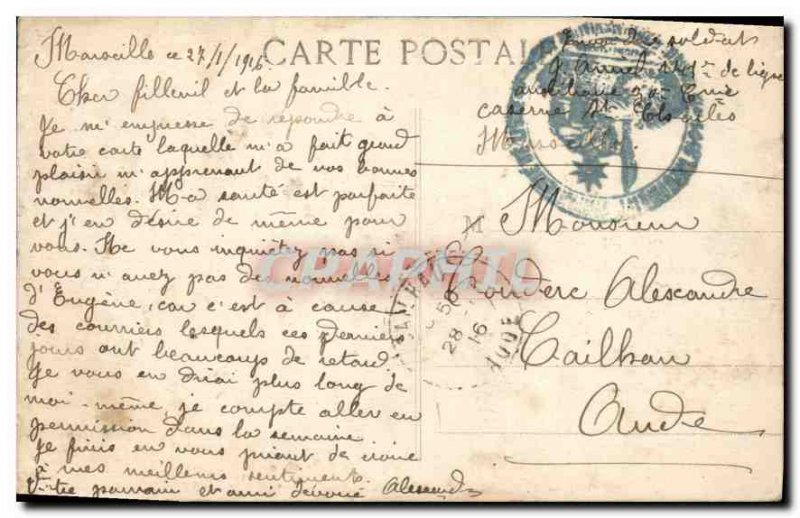 Marseille ce 27/1/1916
CARTE POSTALE
Cher filleuil et la famille.
Je m'empresse de répondre à
votre carte laquelle m'a fait grand
plaisir m'apprenant de vos bonnes
nouvelles. Ma santé est parfaite
et j'en désire de même pour
vous. Ne vous inquiétez pas si
vous n'avez pas des nouvelles
d'Eugène, car c'est à cause
des courriers lesquels ces derniers
jours ont beaucoups de retard
Je vous en dirai plus long de
moi-même, je compte aller en
permission dans la semaine
Je finis en vous priant de croire
à mes meilleurs sentiments.
Votre parrain et ami dévoué Alexandre
soldat
de ligne
auxiliaire
caserne St Charles
Marseille
M Monsieur
Couderc Alexandre
Cailhau
Aude
28 16
AUDE
CPARAMA